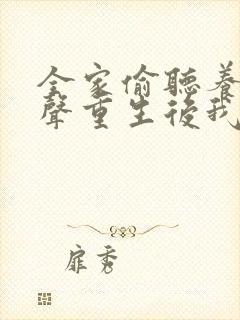 全家偷聽養
聲重生後我
扉秀